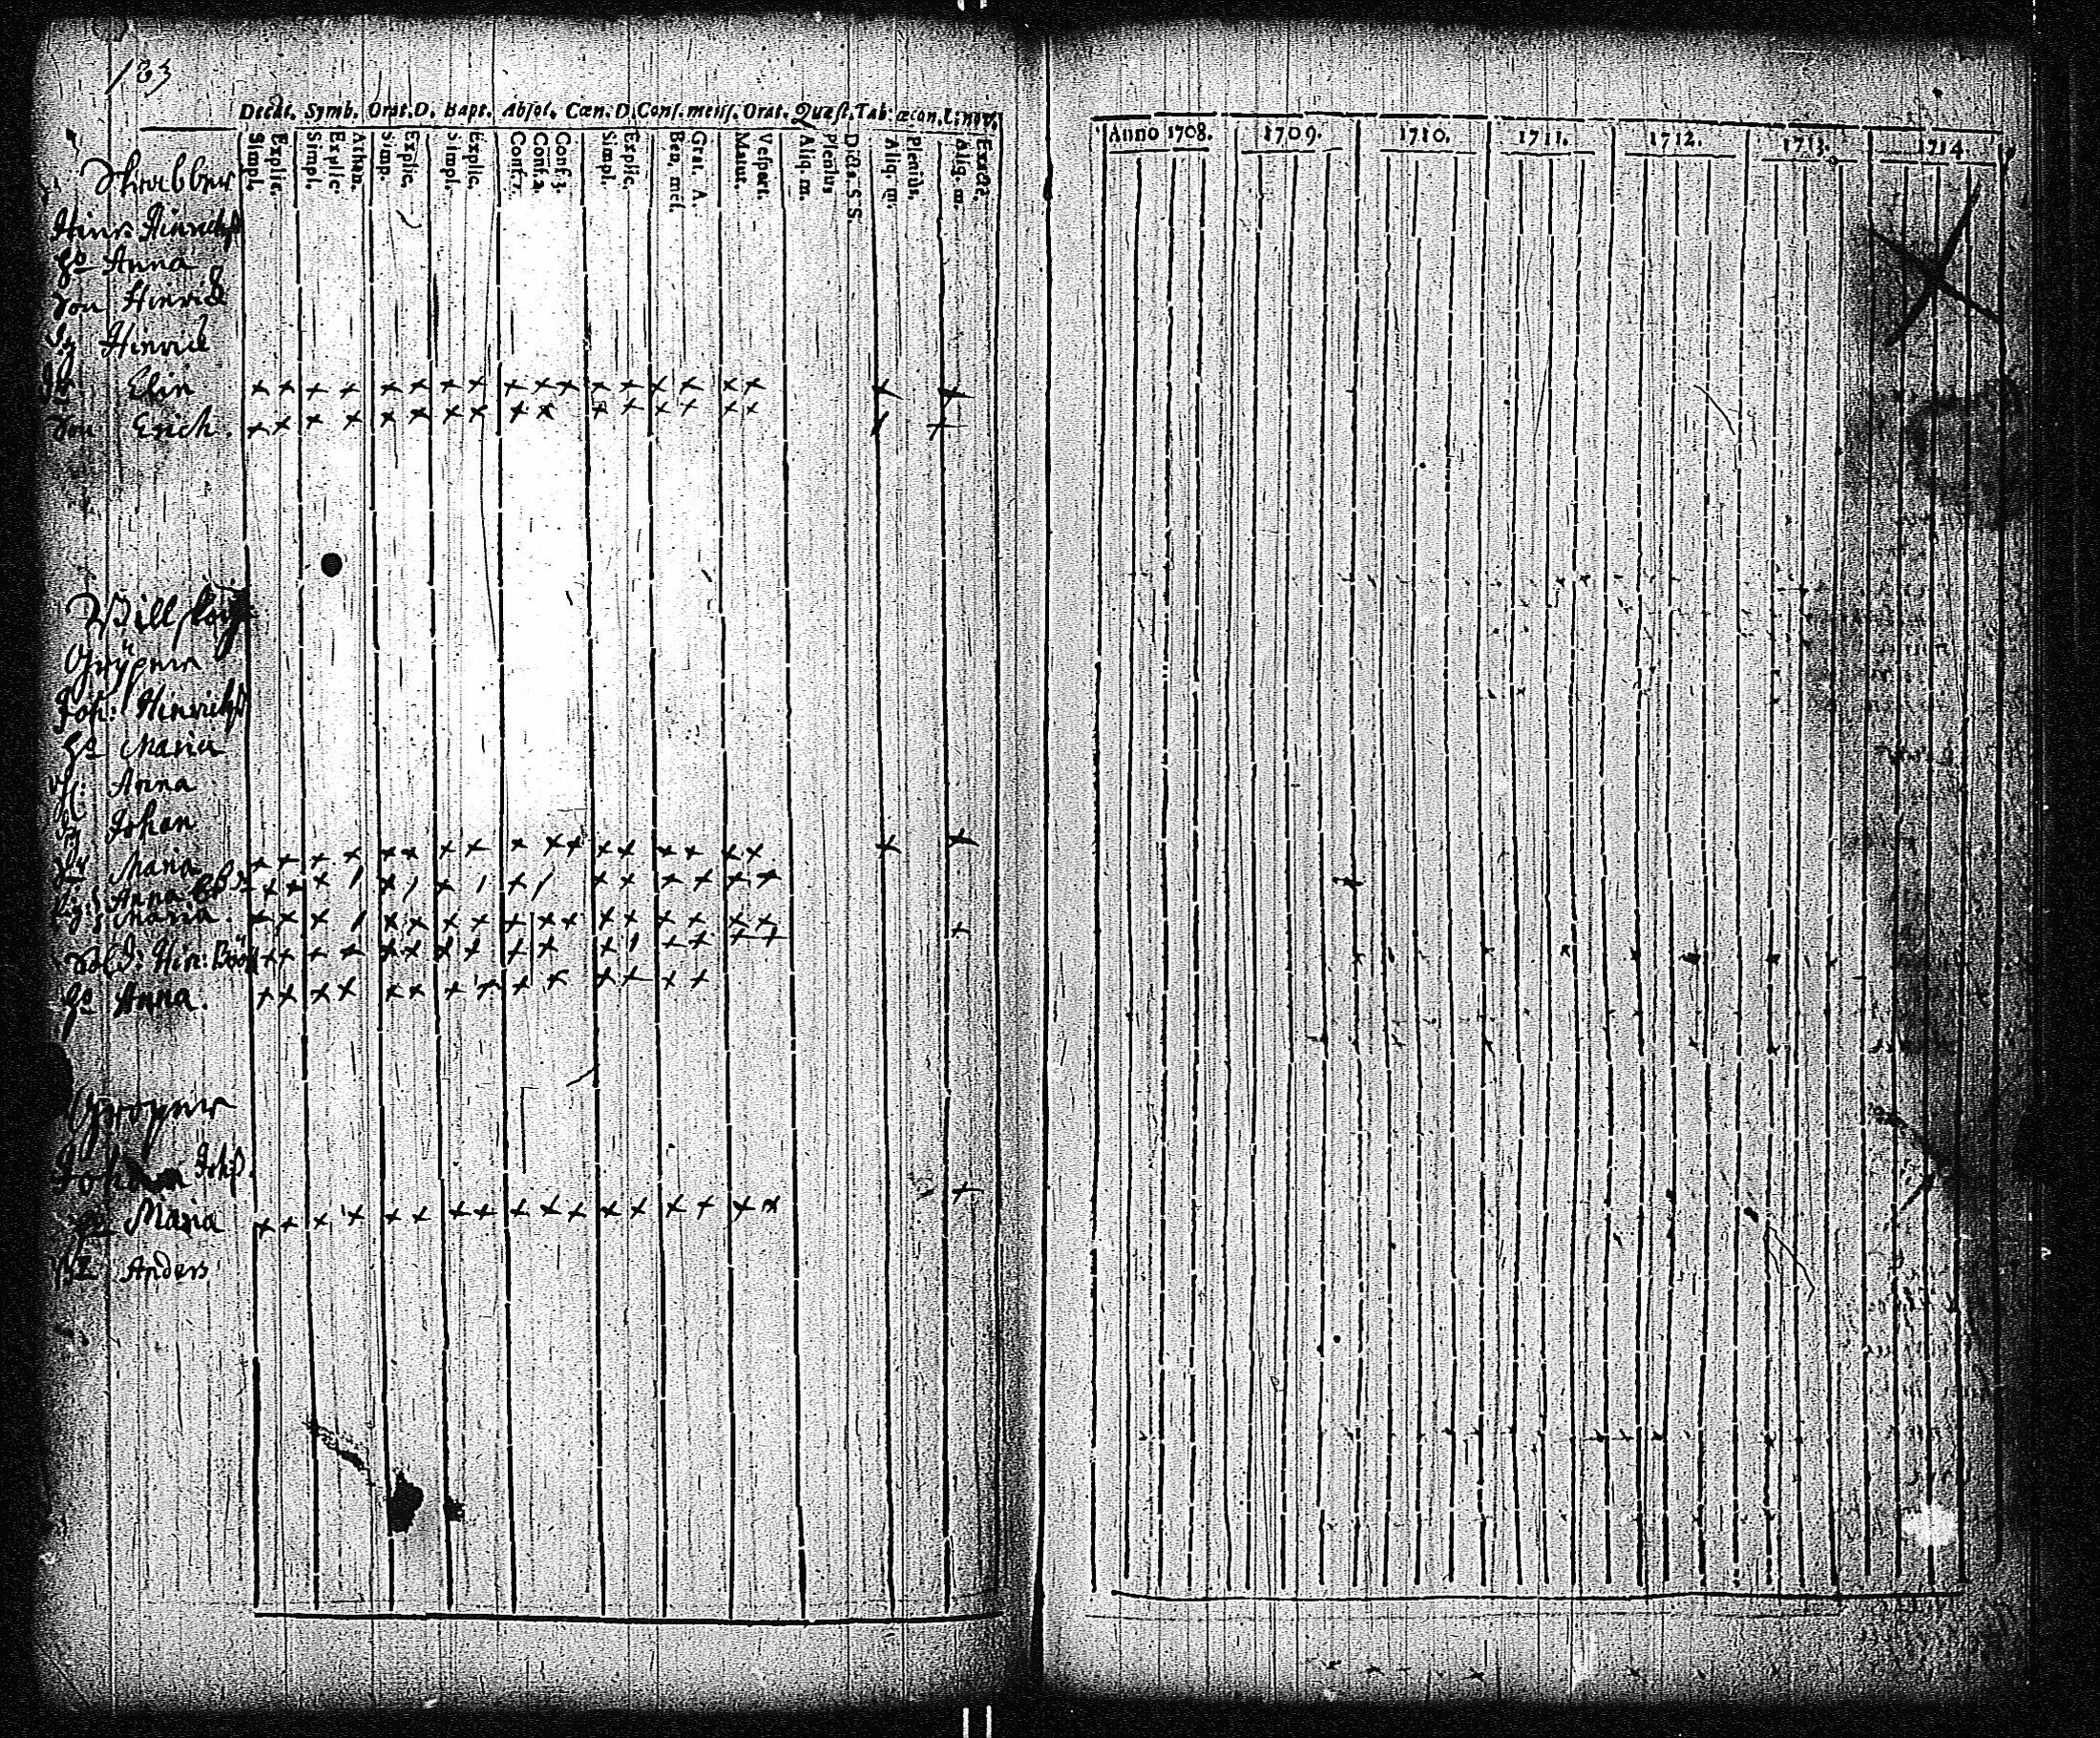 183
Decal. Symb. Orat. D. Bapt. Absol. Cœn. D. Conf. mens. Orat. Quæst. Tab. œcon. L. nov.
Simpl. Explic. Simpl. Explic. Athan. Simp. Explic. Simpl. Explic. Conf. 1. Conf. 2. Conf. 3. Simpl. Explic. Ben. mes. Grat. A. Matut. Vespert. Aliq. m. Plenius Dicta S. S. Aliq. m. Plenius. Aliq. m. Exacte.
Skrabber
Hinr: Hinrichsß
Ho Anna
Son Hinrich
Dg Hinrich
Elin
Son Erich.
Willskog
Grÿper
Joh: Hinrichsß
Ho Maria
Anna
Johan
Maria
Anna
Maria.
Sold: Hin: Böök
Ho Anna.
Johan Johß.
Maria
Anders
Anno 1708. 1709. 1710. 1711. 1712. 1713. 1714